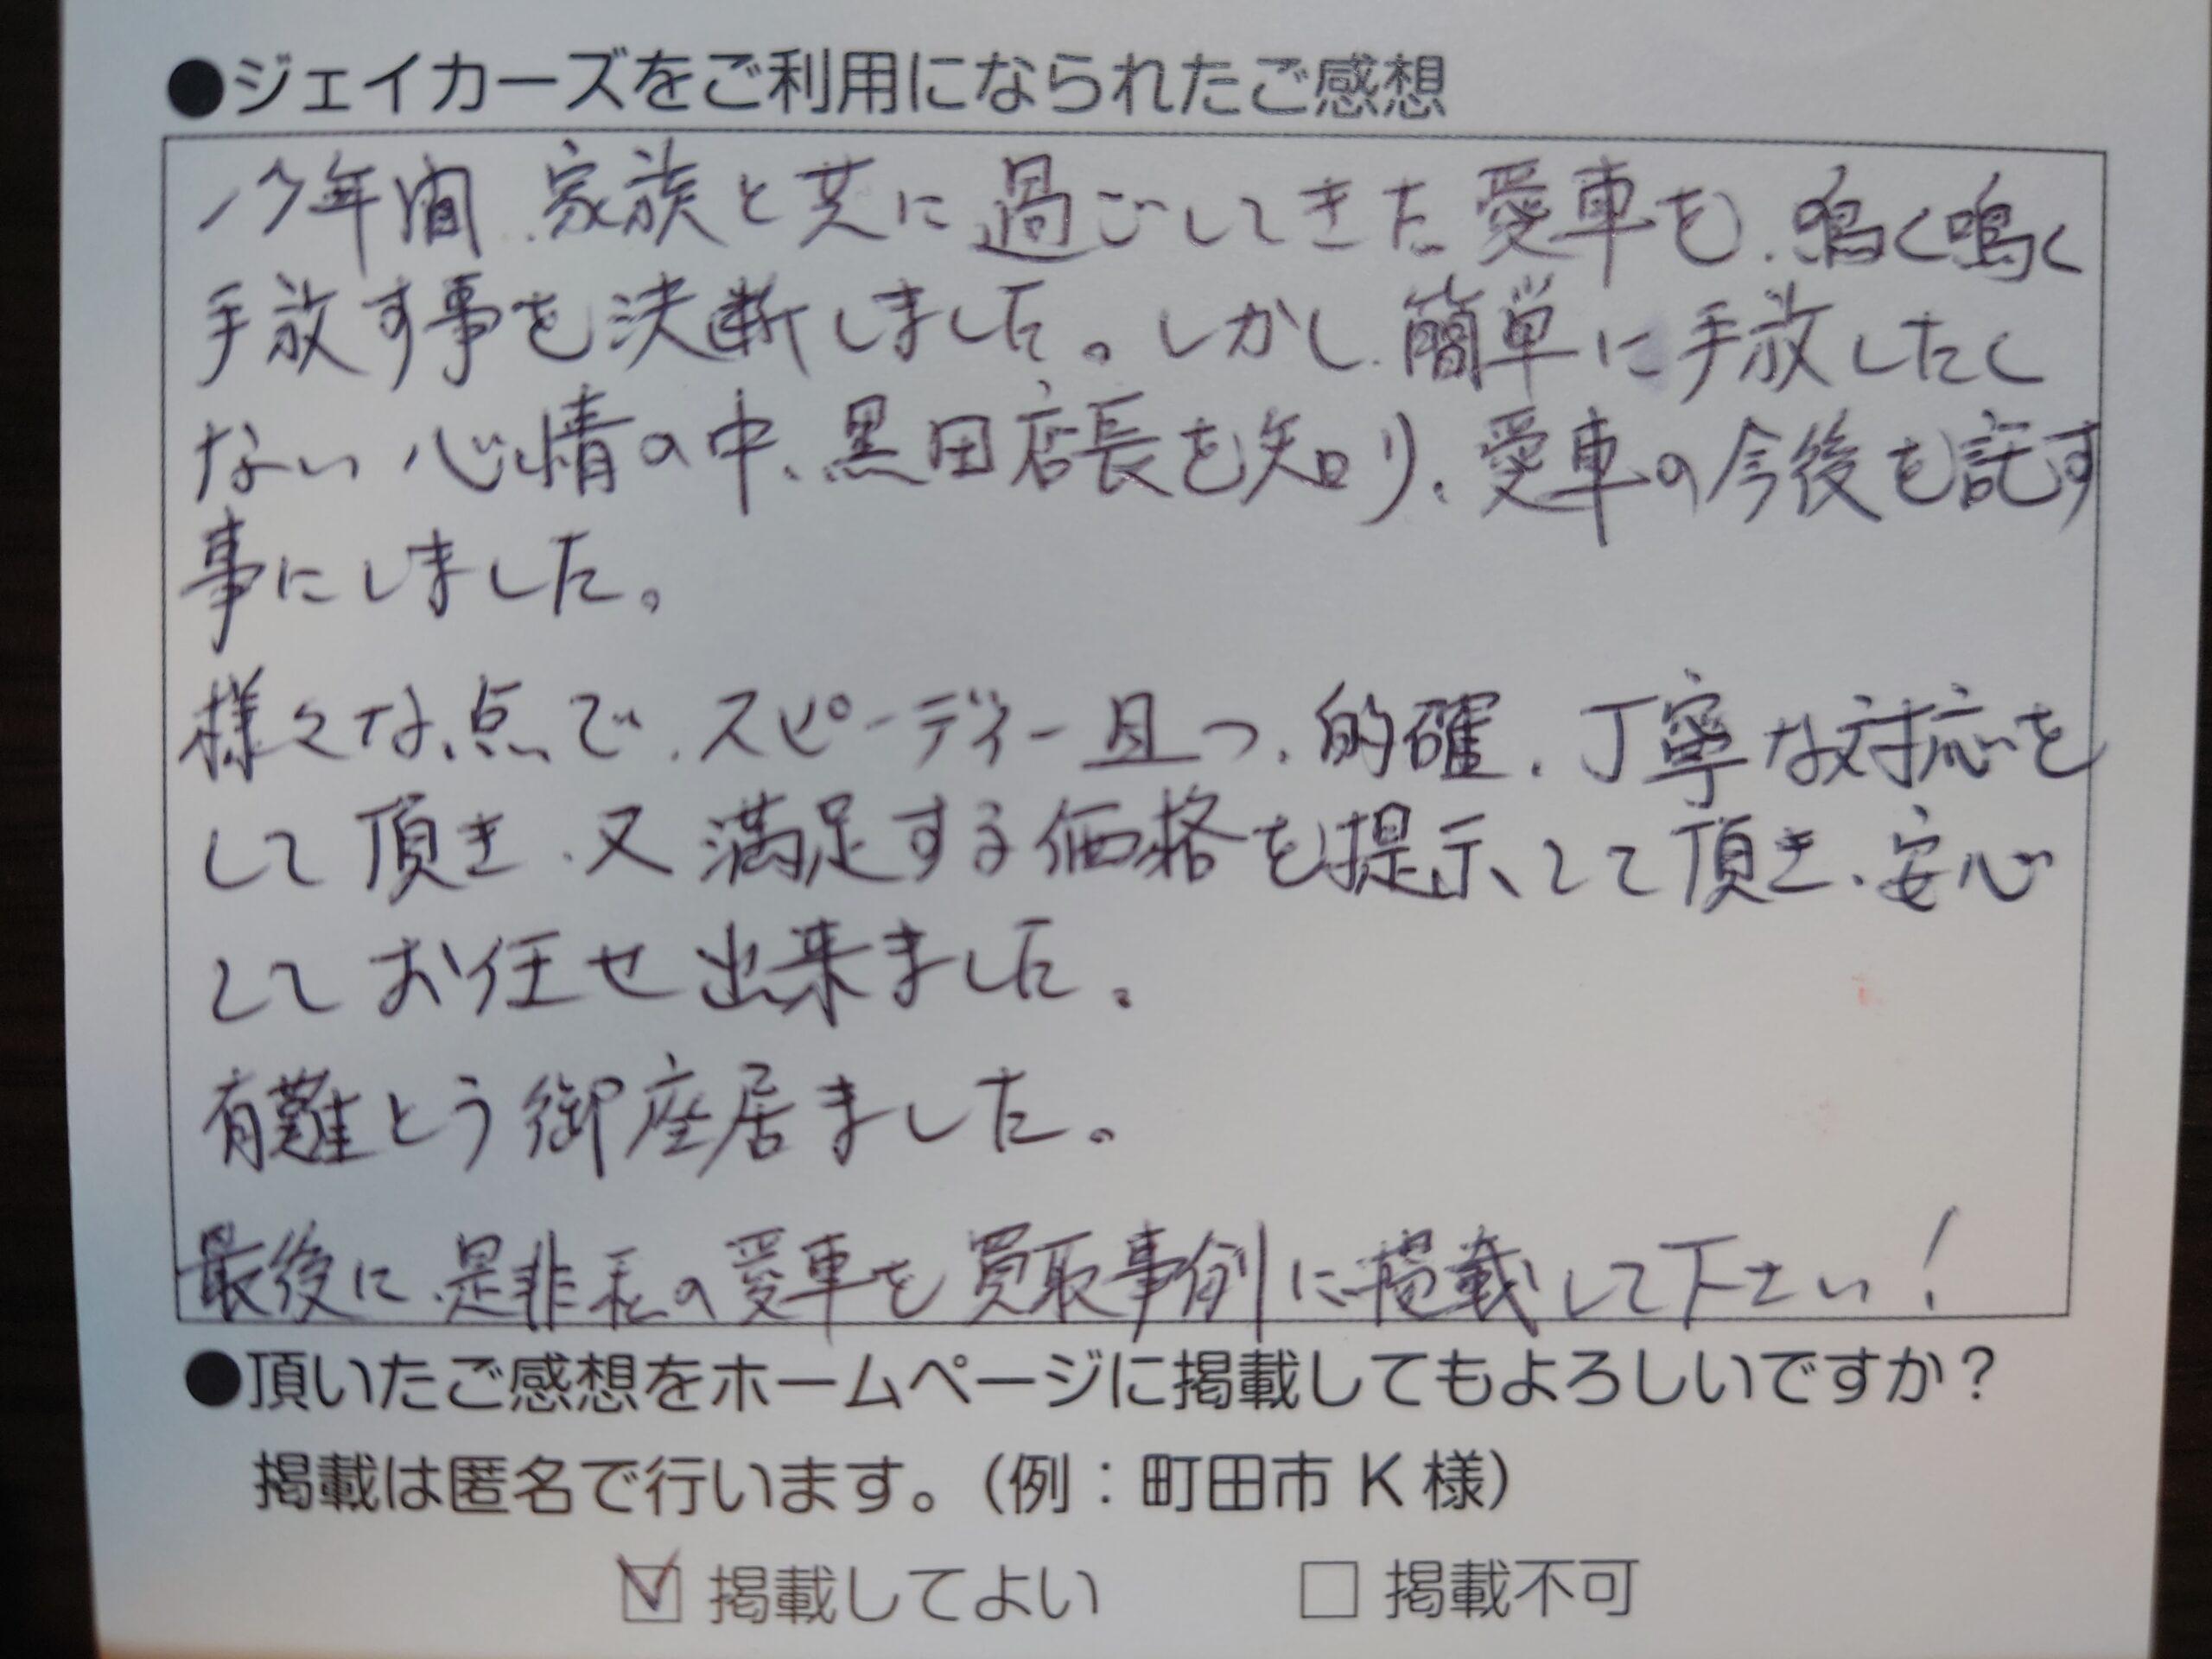 ●ジェイカーズをご利用になられたご感想
年間、家族と共に過ごしてきた愛車を、鳴く鳴く
手放す事を決断しました。しかし、簡単に手放したく
ない心情の中、黒田店長を知り、愛車の今後を託す
事にしました。
様々な点で、スピーディー且つ、的確、丁寧な対応を
して頂き、又満足する価格を提示して頂き、安心
してお任せ出来ました。
有難とう御座居ました。
最後に、是非私の愛車を買取事例に掲載して下さい！
●頂いたご感想をホームページに掲載してもよろしいですか？
掲載は匿名で行います。（例：町田市 K 様）
☑ 掲載してよい □ 掲載不可